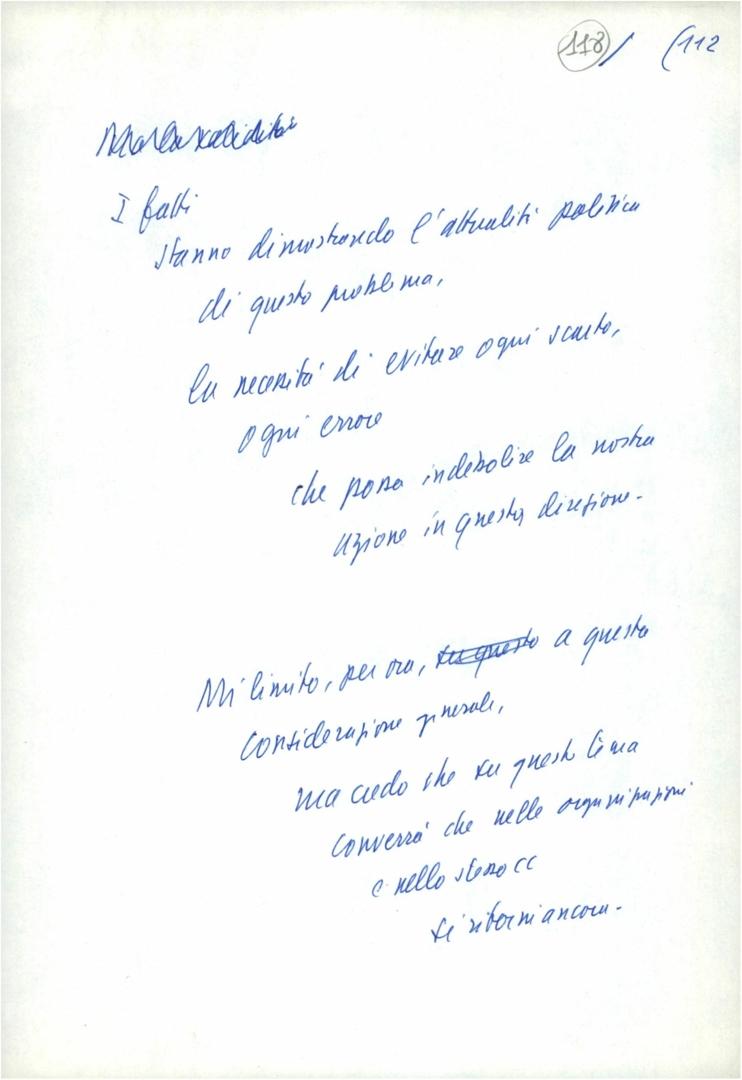 118 / (112
I fatti
stanno dimostrando l'attualità politica
di questo problema,
la necessità di evitare ogni scarto,
ogni errore
che possa indebolire la nostra
azione in questa direzione.
Mi limito, per ora, su questo a questa
considerazione generale,
ma credo che su questo tema
converrà che nelle organizzazioni
e nello stesso CC
si ritorni ancora.